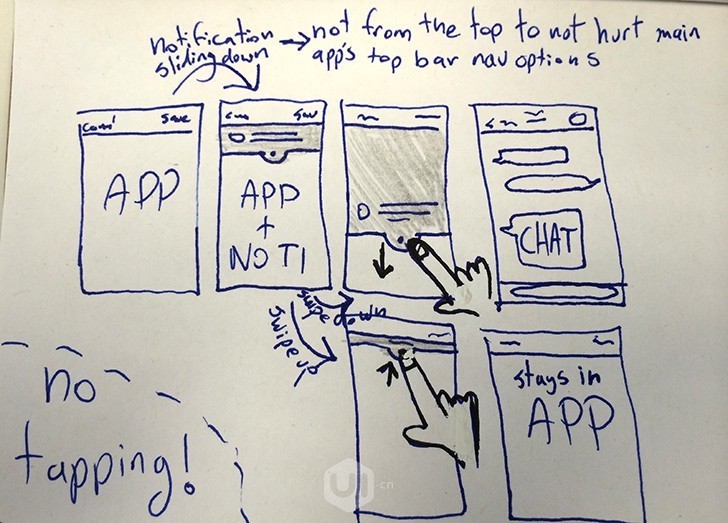 notification → not from the top to not hurt main
sliding down app's top bar nav options
Save
APP
APP
+
NOTI
CHAT
swipe down
swipe up
stays in
APP
no
tapping!
UI.cn